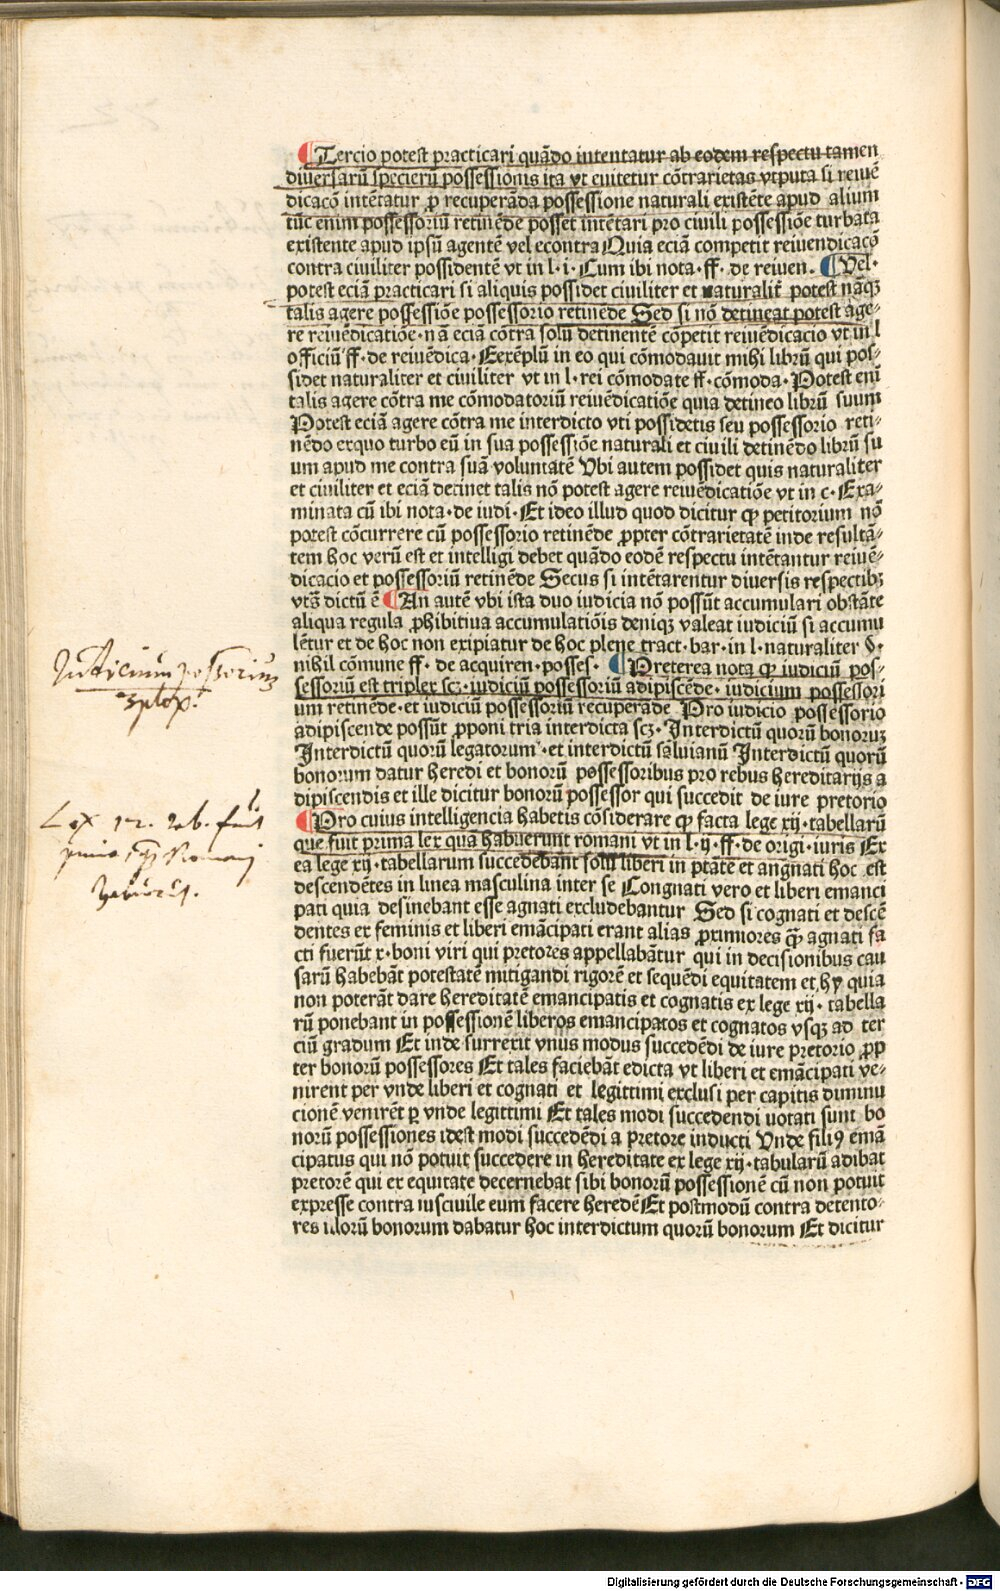 ¶Tercio potest practicari quãdo intentatur ab eodem respectu tamen
diuersarũ specierũ possessionis ita vt euitetur cõtrarietas vtputa si reiuẽ
dicacõ intẽtatur ꝓ recuperãda possessione naturali existẽte apud alium
tũc enim possessoriũ retinẽde posset intẽtari pro ciuili possessiõe turbata
existente apud ipsũ agentẽ vel econtra Quia eciã competit reiuendicacõ
contra ciuiliter possidentẽ vt in l·i·Cum ibi nota·ff·de reiuen. ¶Vel·
potest eciã practicari si aliquis possidet ciuiliter et naturalit̃ potest nãqꝫ
talis agere possessiõe possessorio retinẽde Sed si nõ detineat potest age-
re reiuẽdicatiõe·nã eciã cõtra solũ detinentẽ cõpetit reiuẽdicacio vt in l
officiũ ff·de reiuẽdica·Eexẽplũ in eo qui cõmodauit mihi librũ qui pos-
sidet naturaliter et ciuiliter vt in l·rei cõmodate ff·cõmoda·Potest enĩ
talis agere cõtra me cõmodatoriũ reiuẽdicatiõe quia detineo librũ suum
Potest eciã agere cõtra me interdicto vti possidetis seu possessorio reti-
nẽdo exquo turbo eũ in sua possessiõe naturali et ciuili detinẽdo librũ su
um apud me contra suã voluntatẽ Vbi autem possidet quis naturaliter
et ciuiliter et eciã detinet talis nõ potest agere reiuẽdicatiõe vt in c·Exa-
minata cũ ibi nota·de iudi·Et ideo illud quod dicitur ꝙ petitorium nõ
potest cõcurrere cũ possessorio retinẽde ꝓpter cõtrarietatẽ inde resultã-
tem hoc verũ est et intelligi debet quãdo eodẽ respectu intẽtantur reiuẽ-
dicacio et possessoriũ retinẽde Secus si intẽtarentur diuersis respectibꝫ
vts̃ dictũ ẽ ¶An autẽ vbi ista duo iudicia nõ possũt accumulari obstãte
aliqua regula ꝓhibitiua accumulatiõis deniqꝫ valeat iudiciũ si accumu
lẽtur et de hoc non exipiatur de hoc plene tract·bar·in l·naturaliter §·
nihil cõmune ff·de acquiren·posses· ¶Preterea nota ꝙ iudiciũ pos-
sessoriũ est triplex scꝫ·iudiciũ possessoriũ adipiscẽde·iudicium possessori
um retinẽde·et iudiciũ possessoriũ recuperãde Pro iudicio possessorio
adipiscende possũt ꝓponi tria interdicta scꝫ·Interdictũ quorũ bonoruꝫ
Interdictũ quorũ legatorum·et interdictũ saluianũ Interdictũ quorũ
bonorum datur heredi et bonorũ possessoribus pro rebus hereditarijs a
dipiscendis et ille dicitur bonorũ possessor qui succedit de iure pretorio
¶Pro cuius intelligencia habetis cõsiderare ꝙ facta lege xij·tabellarũ
que fuit prima lex quã habuerunt romani vt in l·ij·ff·de origi·iuris Ex
ea lege xij·tabellarum succedebant solũ liberi in ptãte et angnati hoc est
descendẽtes in linea masculina inter se Congnati vero et liberi emanci
pati quia desinebant esse agnati excludebantur Sed si cognati et descẽ
dentes ex feminis et liberi emãcipati erant alias ꝓximiores q̃ agnati fa
cti fuerũt x·boni viri qui pretores appellabãtur qui in decisionibus cau
sarũ habebãt potestatẽ mitigandi rigorẽ et sequẽdi equitatem et hy quia
non poterãt dare hereditatẽ emancipatis et cognatis ex lege xij·tabella
rũ ponebant in possessionẽ liberos emancipatos et cognatos vsqꝫ ad ter
ciũ gradum Et inde surrexit vnus modus succedẽdi de iure pretorio ꝓp
ter bonorũ possessores Et tales faciebãt edicta vt liberi et emãcipati ve-
nirent per vnde liberi et cognati et legittimi exclusi per capitis diminu
cionẽ venirẽt ꝑ vnde legittimi Et tales modi succedendi uotati sunt bo
norũ possessiones idest modi succedẽdi a pretore inducti Vnde filiꝰ emã
cipatus qui nõ potuit succedere in hereditate ex lege xij·tabularũ adibat
pretorẽ qui ex equitate decernebat sibi bonorũ possessionẽ cũ non potuit
expresse contra iusciuile eum facere heredẽ Et postmodũ contra detento-
res illorũ bonorum dabatur hoc interdictum quorũ bonorum Et dicitur
Judicium possessorium
3plex.
Lex 12. tab. fuit
prima, Romani
habuerũt.